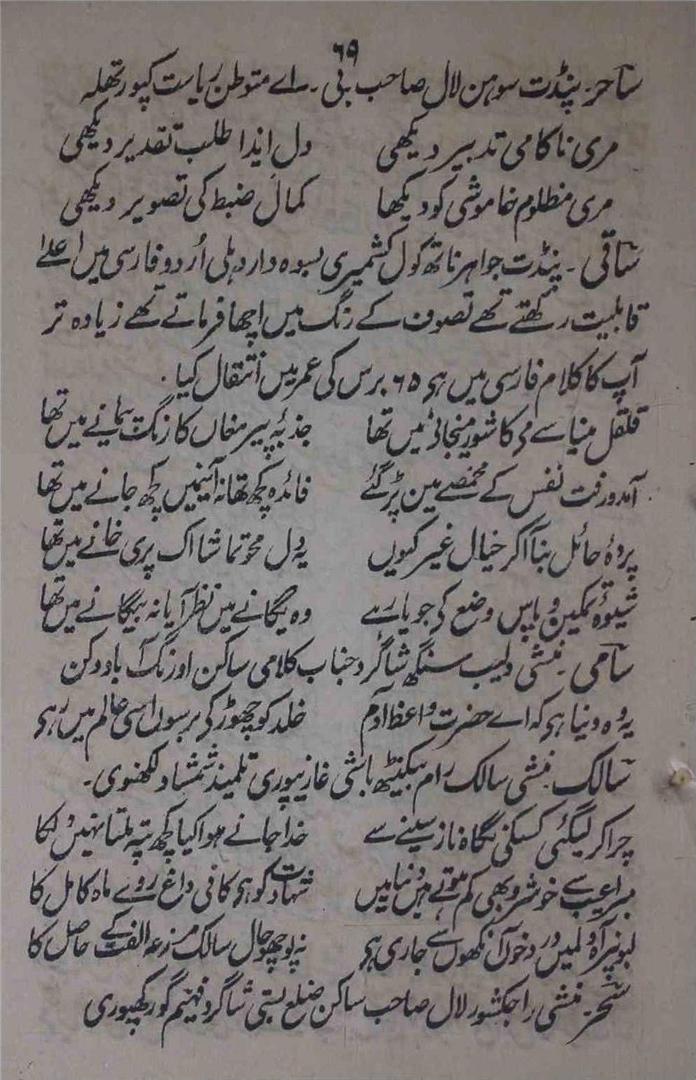 ۶۹
ساحر۔ پنڈت سوہن لال صاحب بی۔ اے متوطن ریاست کپورتھلہ
مری ناکامی تدبیر دیکھی دل ایذا طلب تقدیر دیکھی
مری مظلوم خاموشی کو دیکھا کمال ضبط کی تصویر دیکھی
ساقی۔ پنڈت جواہر ناتھ کول کشمیری بسوہ دار دہلی اُردو فارسی میں اعلےٰ
قابلیت رکھتے تھے تصوف کے رنگ میں اچھا فرماتے تھے زیادہ تر
آپ کا کلام فارسی میں ہی ۶۵ برس کی عمر میں انتقال کیا۔
قلقل مینا سے می کا شور میخانے میں تھا جذبۂ پیر مغاں کا رنگ پیمانے میں تھا
آمد و رفت نفس کے مخمصے مین پڑ گئے فائدہ کچھ تھا نہ آنیمیں کچھ جانے میں تھا
پردۂ حائل بنا آکر خیال غیر کیوں یہ دل محو تماشا اک پری خانے میں تھا
شیوۂ تمکین و پاس وضع کی جویا رہے وہ یگانے میں نظر آیا نہ بیگانے میں تھا
سامی۔ منشی دلیب سنگھ شاگرد جناب کلامی ساکن اورنگ آباد دکن
یہ وہ دنیا ہی کہ اے حضرت واعظ آدم خلد کو چھوڑ کی برسوں اسی عالم میں رہی
سالک۔ منشی سالک رام بیکنیٹھ باشی غازیپوری تلمیذ شمشاد لکھنوی۔
چرا کر لیگئی کسکی نگاہ ناز سینے سے خدا جانے ہوا کیا کچھ پتہ ملتا نہیں دلکا
مبرا عیب سے خوشرو بھی کم ہوتے ہیں دنیا میں شہادت کو ہی کافی داغ روے ماہ کامل کا
لبونپر آہ دلمیں درد خوں آنکھوں سے جاری ہی نہ پوچھو حال سالک مزرعہ الفت کے حاصل کا
سحر۔ منشی راجکشور لال صاحب ساکن ضلع بستی شاگرد فہیم گورکھپوری